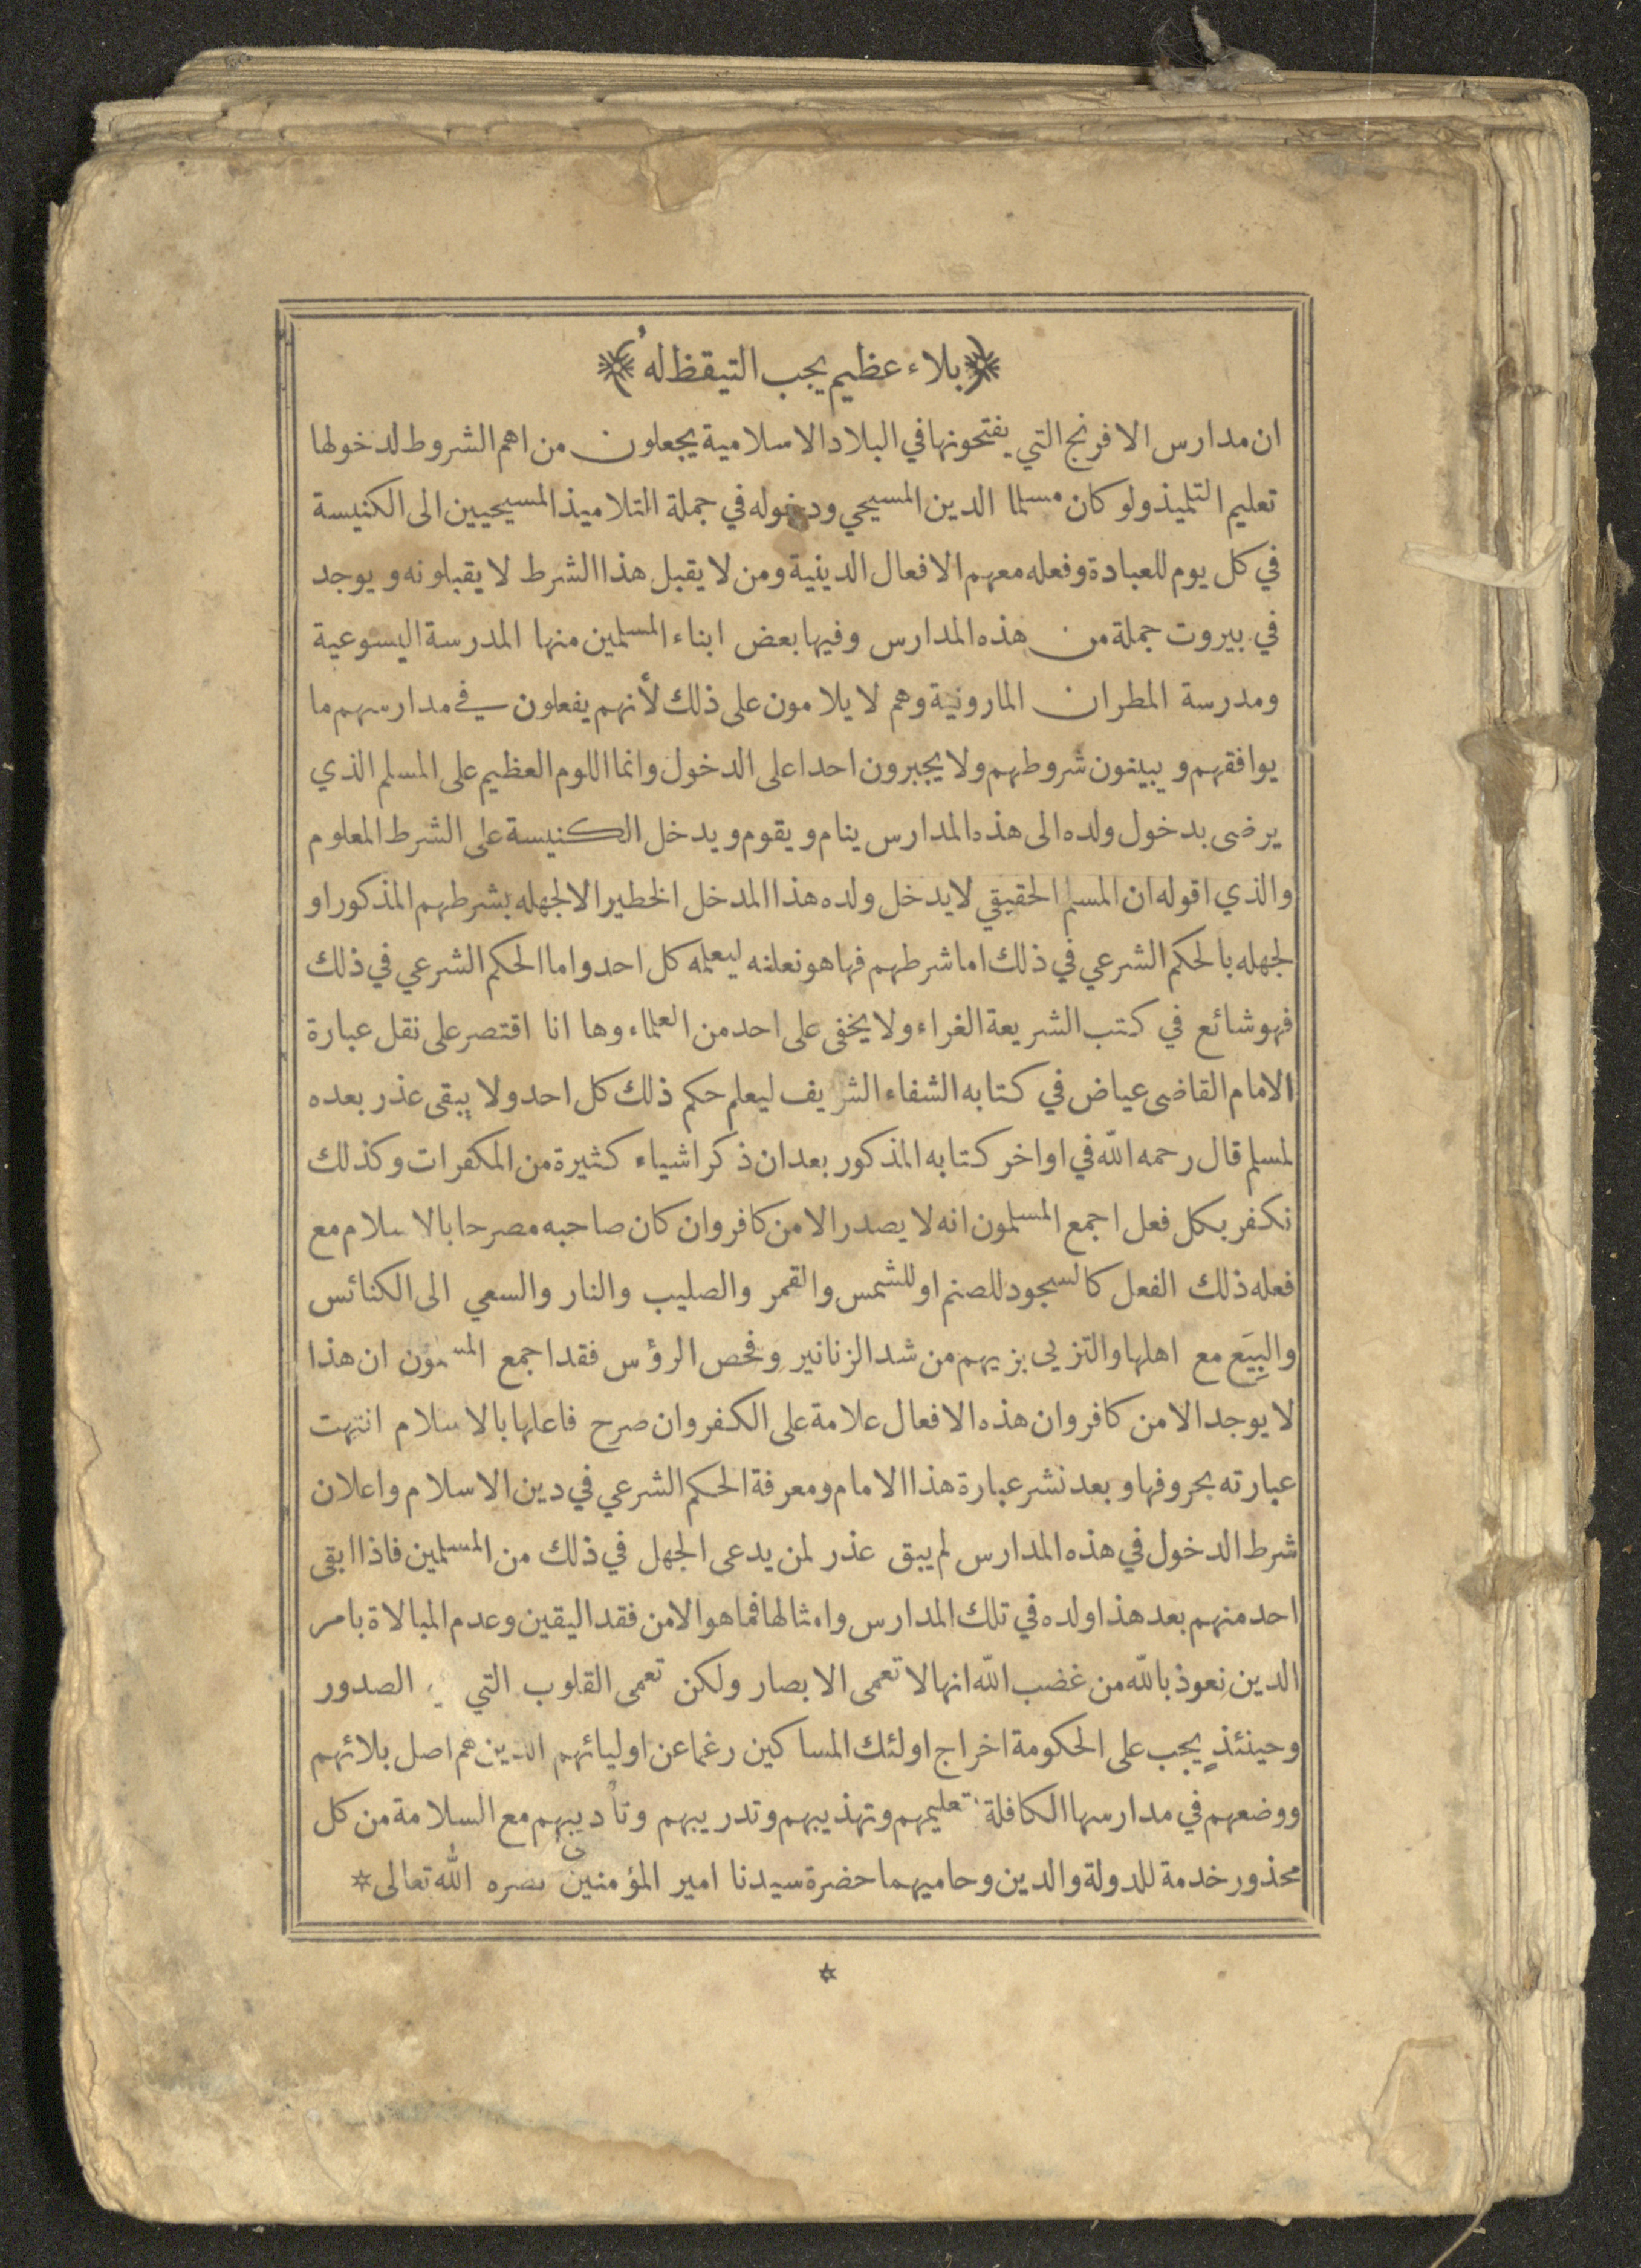 ﴿بلاء عظيم يجب التيقظ لهُ﴾
ان مدارس الافرنج التي يفتحونها في البلاد الاسلامية يجعلون من اهم الشروط لدخولها
تعليم التلميذ ولو كان مسلما الدين المسيحي ودخوله في جملة التلاميذ المسيحيين الى الكنيسة
في كل يوم للعبادة وفعله معهم الافعال الدينية ومن لا يقبل هذا الشرط لا يقبلونه ويوجد
في بيروت جملة من هذه المدارس وفيها بعض ابناء المسلمين منها المدرسة اليسوعية
ومدرسة المطران المارونية وهم لا يلامون على ذلك لأنهم يفعلون في مدارسهم ما
يوافقهم ويبينون شروطهم ولا يجبرون احدا على الدخول وانما اللوم العظيم على المسلم الذي
يرضى بدخول ولده الى هذه المدارس ينام ويقوم ويدخل الكنيسة على الشرط المعلوم
والذي اقوله ان المسلم الحقيقي لا يدخل ولده هذا المدخل الخطير الا لجهله بشرطهم المذكور او
لجهله بالحكم الشرعي في ذلك اما شرطهم فها هو نعلنه ليعلمه كل احد واما الحكم الشرعي في ذلك
فهو شائع في كتب الشريعة الغراء ولا يخفى على احد من العلماء وها انا اقتصر على نقل عبارة
الامام القاضى عياض في كتابه الشفاء الشريف ليعلم حكم ذلك كل احد ولا يبقى عذر بعده
لمسلم قال رحمه الله في اواخر كتابه المذكور بعد ان ذكر اشياء كثيرة من المكفرات وكذلك
نكفر بكل فعل اجمع المسلمون انه لا يصدر الا من كافر وان كان صاحبه مصرحا بالاسلام مع
فعله ذلك الفعل كالسجود للصنم او للشمس والقمر والصليب والنار والسعي الى الكنائس
والبِيَع مع اهلها والتزيي بزيهم من شد الزنانير وفحص الرؤس فقد اجمع المسلمون ان هذا
لا يوجد الا من كافر وان هذه الافعال علامة على الكفر وان صرح فاعلها بالاسلام انتهت
عبارته بحروفها وبعد نشر عبارة هذا الامام ومعرفة الحكم الشرعي في دين الاسلام واعلان
شرط الدخول في هذه المدارس لم يبق عذر لمن يدعى الجهل في ذلك من المسلمين فاذا ابقى
احد منهم بعد هذا ولده في تلك المدارس وامثالها فما هو الا من فقد اليقين وعدم المبالاة بامر
الدين نعوذ بالله من غضب الله انها لا تعمى الابصار ولكن تعمى القلوب التي الصدور
وحينئذٍ يجب على الحكومة اخراج اولئك المساكين رغما عن اوليائهم الذين هم اصل بلائهم
ووضعهم في مدارسها الكافلة تعليمهم وتهذيبهم وتدريبهم وتأديبهم مع السلامة من كل
محذور خدمة للدولة والدين وحاميهما حضرة سيدنا امير المؤمنين نصره الله تعالى*
*